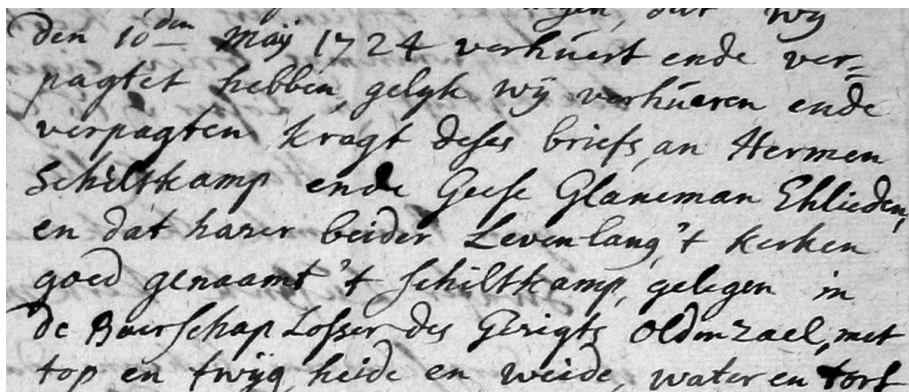 dat wy
den 10den Maÿ 1724 verhúert ende ver=
pagtet hebben, gelyk wÿ verhúeren ende
verpagten kragt deses briefs, an Hermen
Schiltkamp ende Geese Glaneman Ehlieden,
en dat harer beider Levenlang, 't kerken
goed genaamt 't Schiltkamp, gelegen in
de Boerschap Losser des Gerigts Oldenzael, met
top en twÿg, heide en weide, water en torf